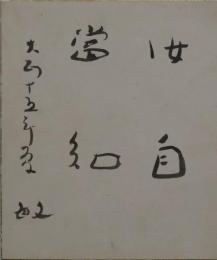 汝自
當知
大正十五年夏